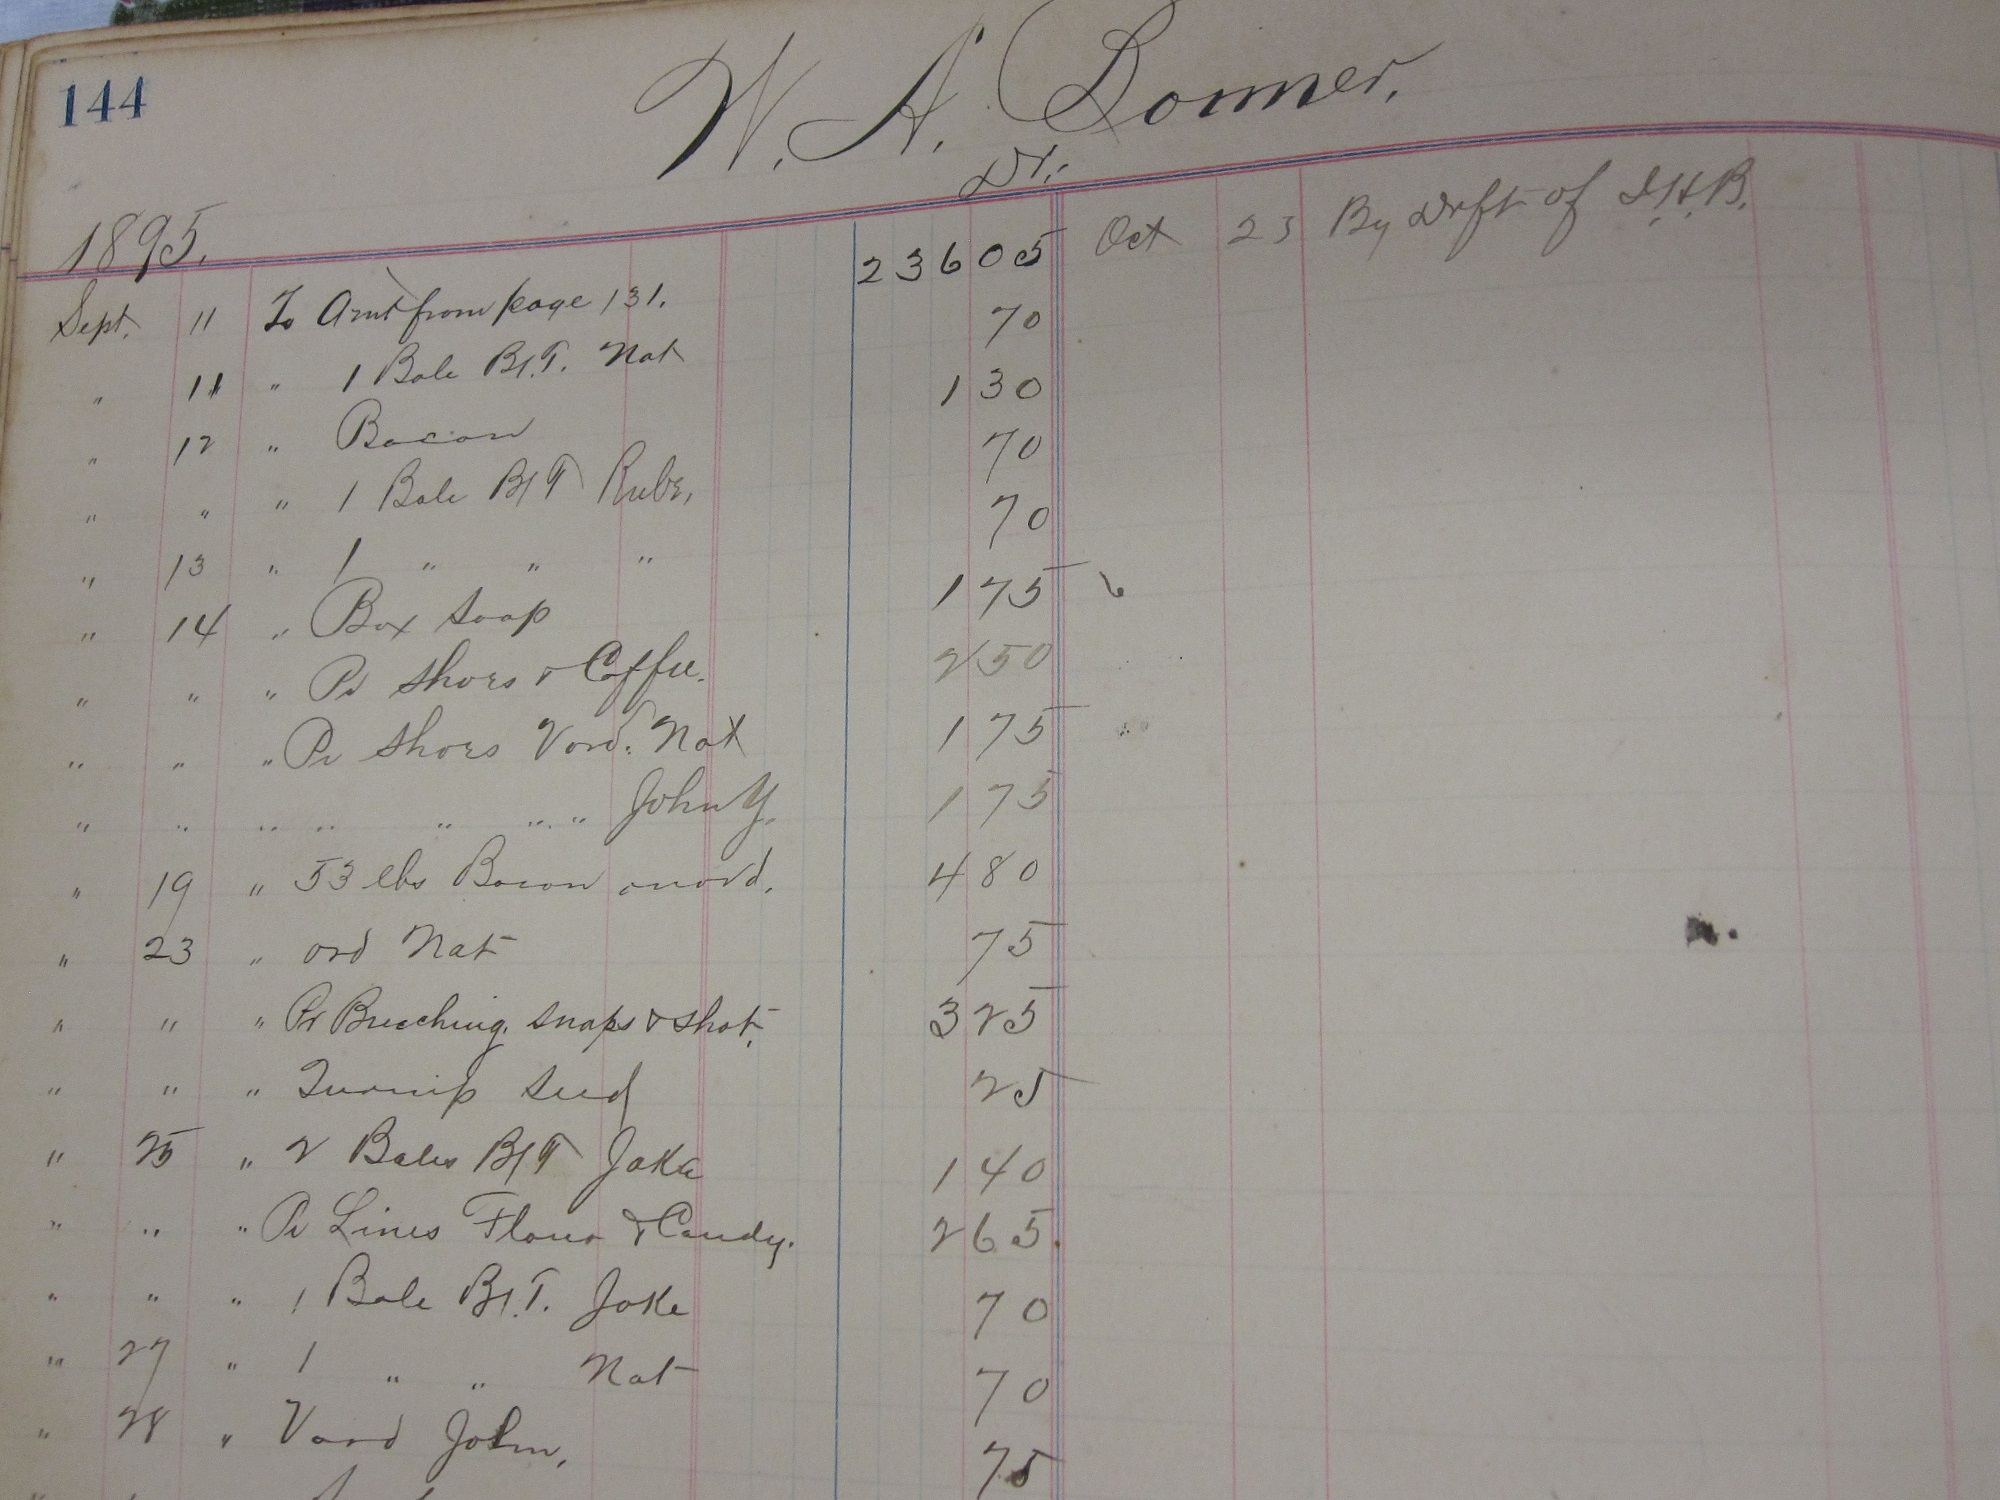 144
W. A. Bonner.
Dr.
1895.
Sept. 11 To Amt from page 131. 23605
" 11 " 1 Bale B/.T. Nat 70
" 12 " Bacon 130
" " " 1 Bale B/T Rube, 70
" 13 " 1 " " " 70
" 14 " Box Soap 175
" " " Pr Shoes & Coffee. 250
" " " Pr Shoes Vord. Nat 175
" " " " " " " John Y. 175
" 19 " 53 lbs Bacon onord. 480
" 23 " ord Nat 75
" " " Pr Breeching. snaps & shot. 325
" " " Turnip Seed 25
" 25 " 2 Bales B/T Jake 140
" " " Pr Lines Flour & Candy. 265
" " " 1 Bale B/.T. Jake 70
" 27 " 1 " " Nat 70
" 28 " Vord John, 75
Oct 23 By Drft of I.H.B.